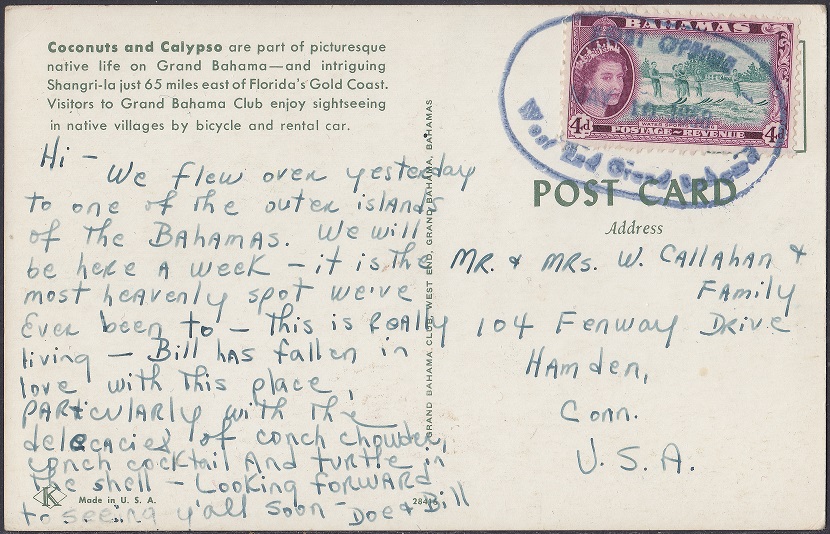 Coconuts and Calypso are part of picturesque
native life on Grand Bahama—and intriguing
Shangri-la just 65 miles east of Florida's Gold Coast.
Visitors to Grand Bahama Club enjoy sightseeing
in native villages by bicycle and rental car.
Hi -
We flew over yesterday
to one of the outer islands
of the BAHAMAS. We will
be here A week - it is the
most heavenly spot we've
Ever been to - This is REAlly
living - Bill has fallen in
love with This place,
PARticulARly with The
delecacies of conch chowder,
conch cocktail And turtle in
The shell - Looking FORWARD
to seeing y'all soon - Doe & Bill
K
Made in U. S. A.
GRAND BAHAMA CLUB, WEST END, GRAND BAHAMA, BAHAMAS
BAHAMAS
4d
POSTAGE~REVENUE
4d
West End Grand Bahama
POST CARD
Address
MR. & MRS. W. CAllAhAN &
FAmily
104 Fenway DRive
Hamden,
Conn.
U. S. A.